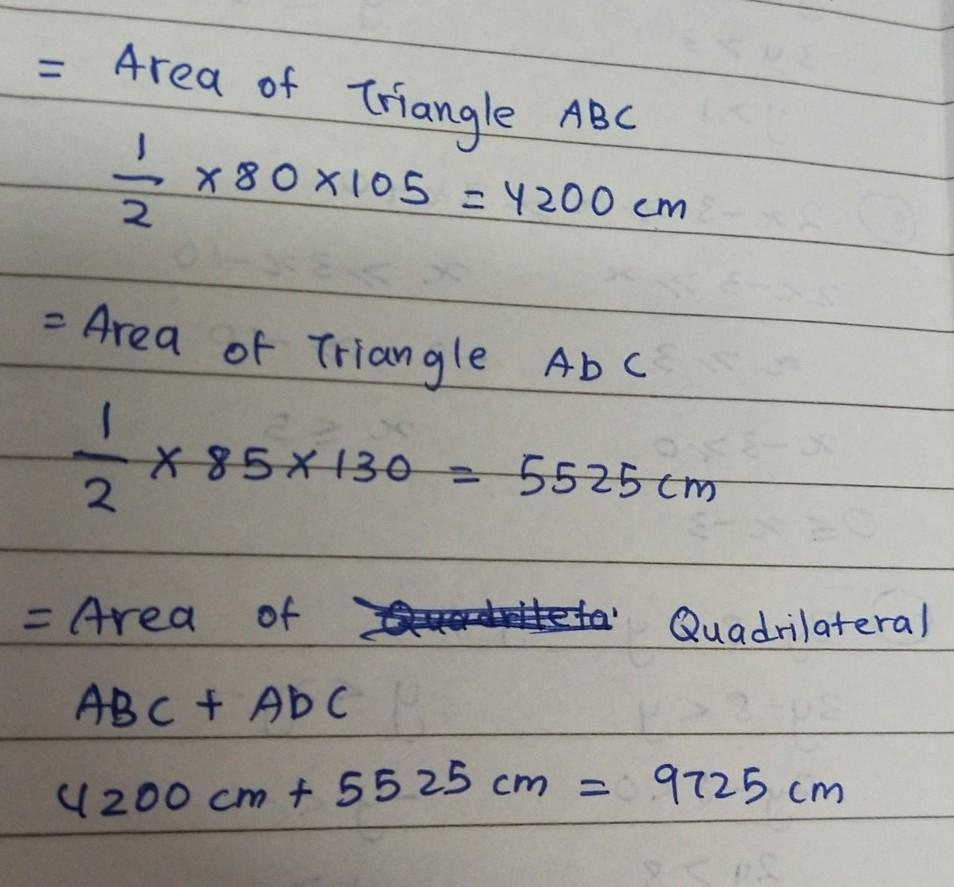 = Area of Triangle ABC
1/2 × 80 × 105 = 4200 cm
= Area of Triangle Abc
1/2 × 85 × 130 = 5525 cm
= Area of Quadrilateral
ABC + ADC
4200 cm + 5525 cm = 9725 cm